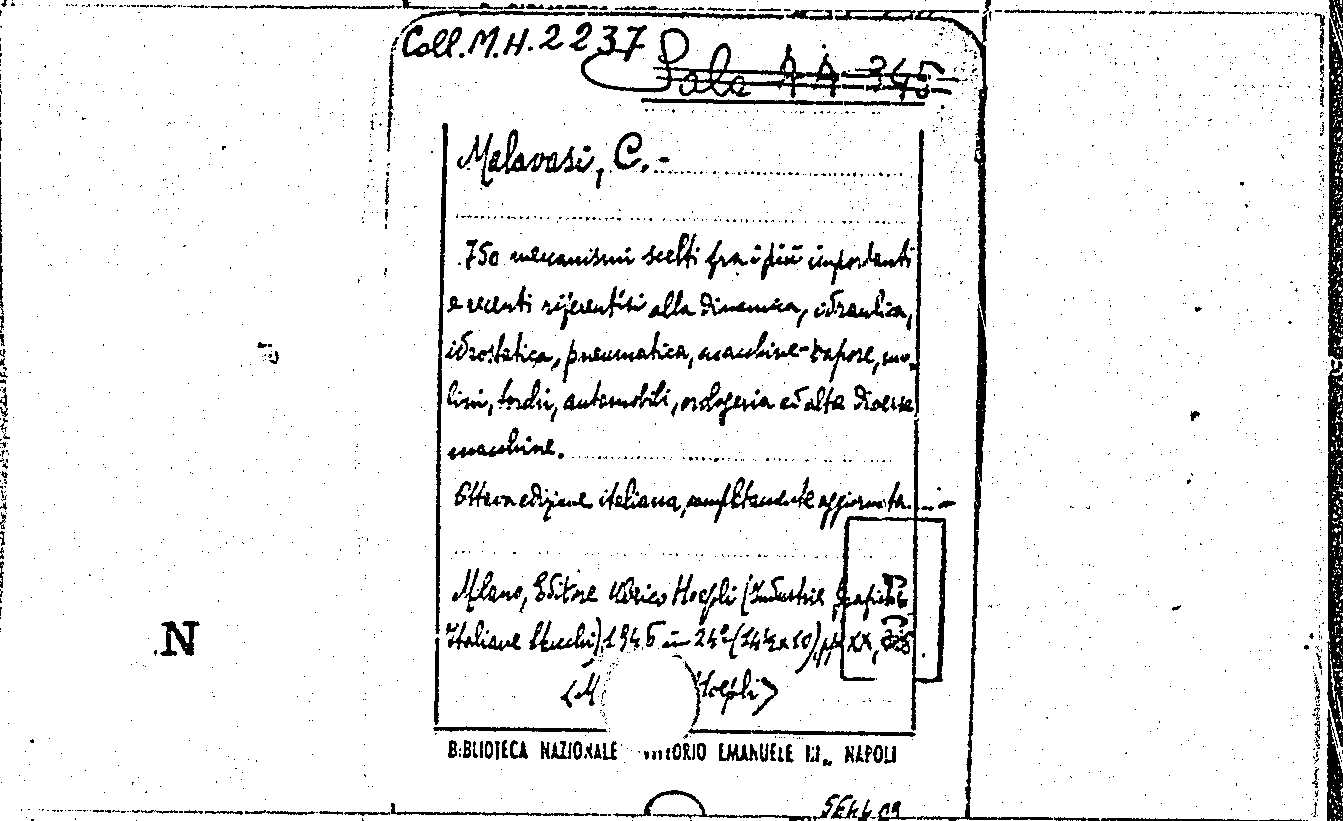 Coll. M.H. 2237
Sala AA 345
Malavasi, C. -
750 meccanismi scelti fra i più importanti
e recenti riferentisi alla dinamica, idraulica,
idrostatica, pneumatica, macchine-vapore, mo-
lini, torchi, automobili, orologeria ed altre diverse
macchine.
Ottava edizione italiana, completamente aggiornata. -
Milano, Editore Ulrico Hoepli (Industrie Grafiche
Italiane Stucchi), 1945 in 24° (14½x10), pp XX,
<M Hoepli>
N
BIBLIOTECA NAZIONALE VITTORIO EMANUELE III„ NAPOLI